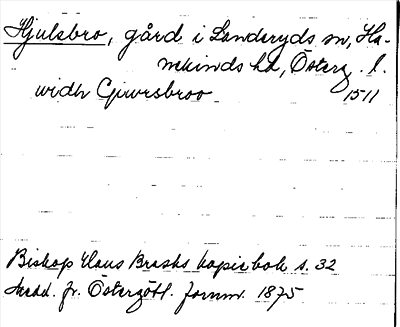 Hjulsbro, gård i Landeryds sn, Ha-
nekinds hd, Österg. l.
widh Giwrsbroo 1511
Biskop Hans Brasks kopiebok s. 32
Medd. fr. Östergötl. fornm. 1875